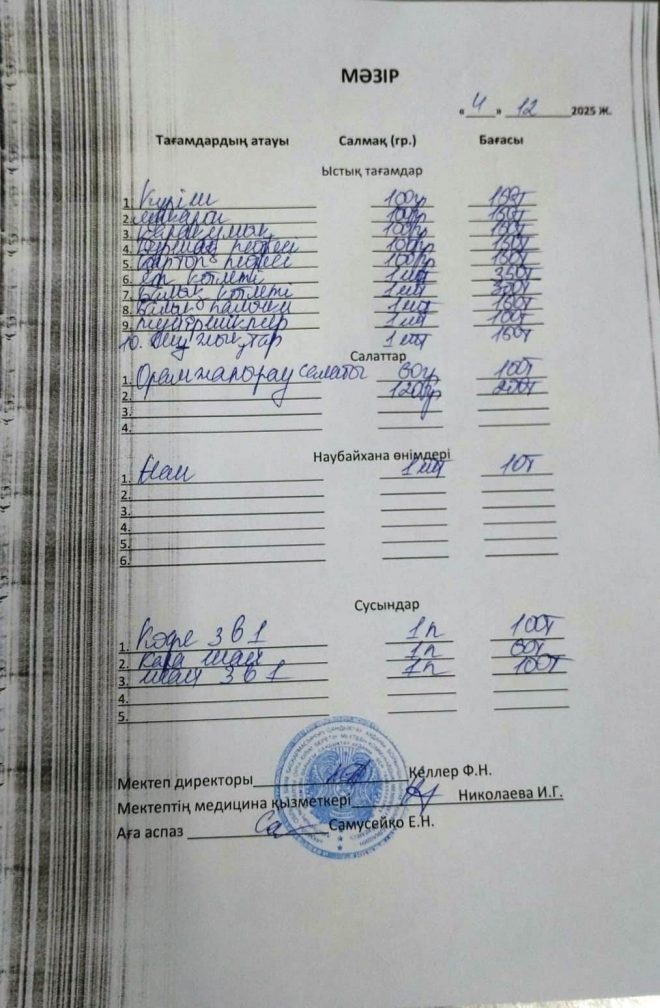 МӘЗІР
« 4 » 12 2025 ж.
Тағамдардың атауы Салмақ (гр.) Бағасы
Ыстық тағамдар
1. Күріш 100гр 150т
2. макарон 100гр 150т
3. Қарақұмық 100гр 150т
4. бұршақ пюресі 100гр 150т
5. картоп пюресі 100гр 150т
6. ет котлеті 1шт 350т
7. балық котлеті 1шт
8. балық 1шт 150т
9. 1шт 100т
10. 1шт 150т
Салаттар
1. Орамжапырақ салаты 60гр 100т
2. 120гр 200т
3.
4.
Наубайхана өнімдері
1. Нан 1шт 10т
2.
3.
4.
5.
6.
Сусындар
1. Кофе 3 в 1 1п 100т
2. Қара шай 1п 60т
3. шай 3 в 1 1п 100т
4.
5.
Мектеп директоры Келлер Ф.Н.
Мектептің медицина қызметкері Николаева И.Г.
Аға аспаз Самусейко Е.Н.